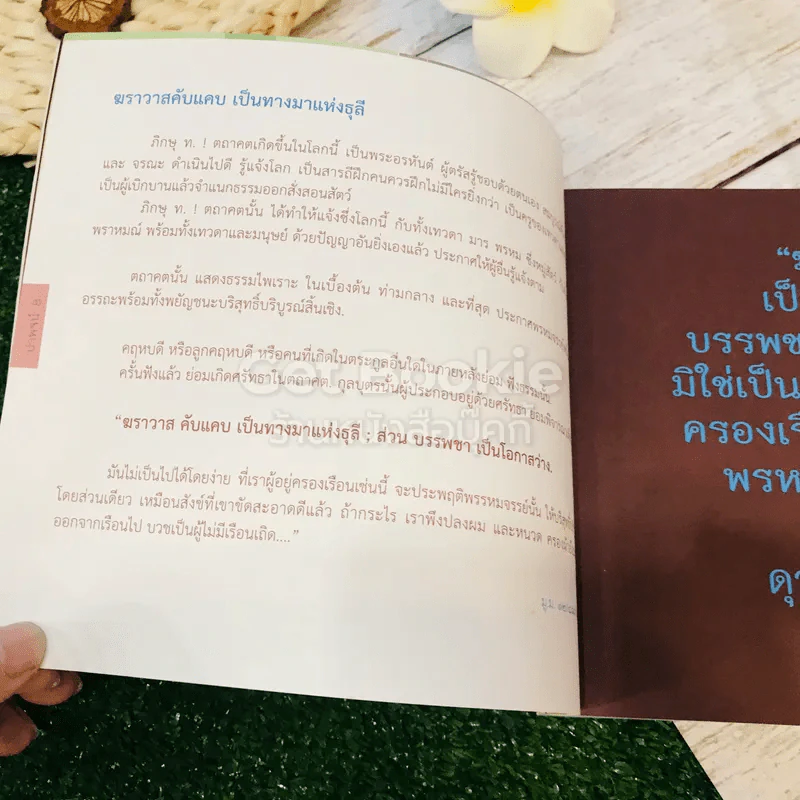 ฆราวาสคับแคบ เป็นทางมาแห่งธุลี
ภิกษุ ท. ! ตถาคตเกิดขึ้นในโลกนี้ เป็นพระอรหันต์ ผู้ตรัสรู้ชอบด้วยตนเอง
และ จรณะ ดำเนินไปดี รู้แจ้งโลก เป็นสารถีฝึกคนควรฝึกไม่มีใครยิ่งกว่า เป็นครูของ
เป็นผู้เบิกบานแล้วจำแนกธรรมออกสั่งสอนสัตว์
ภิกษุ ท. ! ตถาคตนั้น ได้ทำให้แจ้งซึ่งโลกนี้ กับทั้งเทวดา มาร พรหม ซึ่งหมู่สัตว์
พราหมณ์ พร้อมทั้งเทวดาและมนุษย์ ด้วยปัญญาอันยิ่งเองแล้ว ประกาศให้ผู้อื่นรู้แจ้งตาม
ตถาคตนั้น แสดงธรรมไพเราะ ในเบื้องต้น ท่ามกลาง และที่สุด ประกาศพรหมจรรย์
อรรถะพร้อมทั้งพยัญชนะบริสุทธิ์บริบูรณ์สิ้นเชิง.
คฤหบดี หรือลูกคฤหบดี หรือคนที่เกิดในตระกูลอื่นใดในภายหลังย่อม ฟังธรรมนั้น
ครั้นฟังแล้ว ย่อมเกิดศรัทธาในตถาคต. กุลบุตรนั้นผู้ประกอบอยู่ด้วยศรัทธา ย่อมพิจารณา
“ฆราวาส คับแคบ เป็นทางมาแห่งธุลี ; ส่วน บรรพชา เป็นโอกาสว่าง.
มันไม่เป็นไปได้โดยง่าย ที่เราผู้อยู่ครองเรือนเช่นนี้ จะประพฤติพรหมจรรย์นั้น ให้
โดยส่วนเดียว เหมือนสังข์ที่เขาขัดสะอาดดีแล้ว ถ้ากระไร เราพึงปลงผม และหนวด
ออกจากเรือนไป บวชเป็นผู้ไม่มีเรือนเถิด....”
มู.ม.
Get Bookie
ร้านหนังสือบุ๊คกี้
บรรพชา
มิใช่เป็น